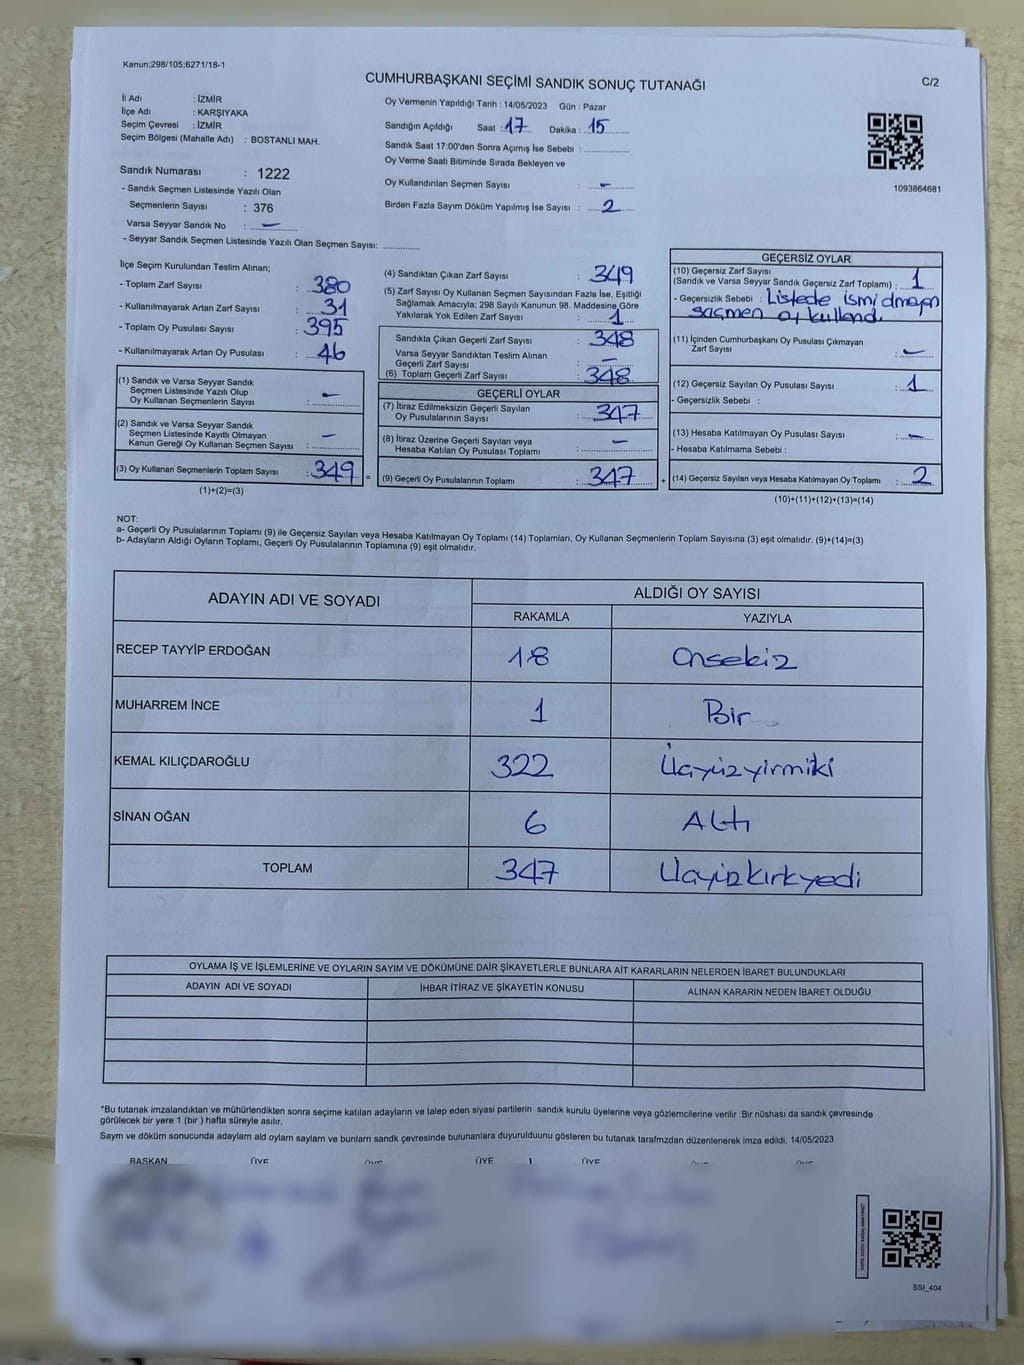 Kanun;298/105;6271/18-1
CUMHURBAŞKANI SEÇİMİ SANDIK SONUÇ TUTANAĞI
C/2
İl Adı : İZMİR
İlçe Adı : KARŞIYAKA
Seçim Çevresi : İZMİR
Seçim Bölgesi (Mahalle Adı) : BOSTANLI MAH.
Sandık Numarası : 1222
- Sandık Seçmen Listesinde Yazılı Olan
Seçmenlerin Sayısı : 376
Varsa Seyyar Sandık No : –
- Seyyar Sandık Seçmen Listesinde Yazılı Olan Seçmen Sayısı: ............
Oy Vermenin Yapıldığı Tarih : 14/05/2023 Gün : Pazar
Sandığın Açıldığı Saat : 17 Dakika : 15
Sandık Saat 17:00'den Sonra Açımış İse Sebebi : ............
Oy Verme Saati Bitiminde Sırada Bekleyen ve
Oy Kullandırılan Seçmen Sayısı : –
Birden Fazla Sayım Döküm Yapılmış İse Sayısı : 2
1093864681
İlçe Seçim Kurulundan Teslim Alınan;
- Toplam Zarf Sayısı : 380
- Kullanılmayarak Artan Zarf Sayısı : 31
- Toplam Oy Pusulası Sayısı : 395
- Kullanılmayarak Artan Oy Pusulası : 46
(1) Sandık ve Varsa Seyyar Sandık
Seçmen Listesinde Yazılı Olup
Oy Kullanan Seçmenlerin Sayısı : –
(2) Sandık ve Varsa Seyyar Sandık
Seçmen Listesinde Kayıtlı Olmayan
Kanun Gereği Oy Kullanan Seçmen Sayısı : –
(3) Oy Kullanan Seçmenlerin Toplam Sayısı : 349 =
(1)+(2)=(3)
(4) Sandıktan Çıkan Zarf Sayısı : 349
(5) Zarf Sayısı Oy Kullanan Seçmen Sayısından Fazla İse, Eşitliği
Sağlamak Amacıyla; 298 Sayılı Kanunun 98. Maddesine Göre
Yakılarak Yok Edilen Zarf Sayısı : 1
Sandıkta Çıkan Geçerli Zarf Sayısı : 348
Varsa Seyyar Sandıktan Teslim Alınan
Geçerli Zarf Sayısı : –
(6) Toplam Geçerli Zarf Sayısı : 348
GEÇERLİ OYLAR
(7) İtiraz Edilmeksizin Geçerli Sayılan
Oy Pusulalarının Sayısı : 347
(8) İtiraz Üzerine Geçerli Sayılan veya
Hesaba Katılan Oy Pusulası Toplamı : –
(9) Geçerli Oy Pusulalarının Toplamı : 347 +
GEÇERSİZ OYLAR
(10) Geçersiz Zarf Sayısı
(Sandık ve Varsa Seyyar Sandık Geçersiz Zarf Toplamı) : 1
- Geçersizlik Sebebi : Listede ismi olmayan
seçmen oy kullandı.
(11) İçinden Cumhurbaşkanı Oy Pusulası Çıkmayan
Zarf Sayısı : –
(12) Geçersiz Sayılan Oy Pusulası Sayısı : 1
- Geçersizlik Sebebi :
(13) Hesaba Katılmayan Oy Pusulası Sayısı : –
- Hesaba Katılmama Sebebi :
(14) Geçersiz Sayılan veya Hesaba Katılmayan Oy Toplamı : 2
(10)+(11)+(12)+(13)=(14)
NOT:
a- Geçerli Oy Pusulalarının Toplamı (9) ile Geçersiz Sayılan veya Hesaba Katılmayan Oy Toplamı (14) Toplamları, Oy Kullanan Seçmenlerin Toplam Sayısına (3) eşit olmalıdır. (9)+(14)=(3)
b- Adayların Aldığı Oyların Toplamı, Geçerli Oy Pusulalarının Toplamına (9) eşit olmalıdır.
ADAYIN ADI VE SOYADI
ALDIĞI OY SAYISI
RAKAMLA YAZIYLA
RECEP TAYYİP ERDOĞAN 18 Onsekiz
MUHARREM İNCE 1 Bir
KEMAL KILIÇDAROĞLU 322 Üçyüzyirmiki
SİNAN OĞAN 6 Altı
TOPLAM 347 Üçyüzkırkyedi
OYLAMA İŞ VE İŞLEMLERİNE VE OYLARIN SAYIM VE DÖKÜMÜNE DAİR ŞİKAYETLERLE BUNLARA AİT KARARLARIN NELERDEN İBARET BULUNDUKLARI
ADAYIN ADI VE SOYADI İHBAR İTİRAZ VE ŞİKAYETİN KONUSU ALINAN KARARIN NEDEN İBARET OLDUĞU
*Bu tutanak imzalandıktan ve mühürlendikten sonra seçime katılan adayların ve talep eden siyasi partilerin sandık kurulu üyelerine veya gözlemcilerine verilir :Bir nüshası da sandık çevresinde
görülecek bir yere 1 (bir ) hafta süreyle asılır.
Sayım ve döküm sonucunda adayların ald oyların sayların ve bunların sandk çevresinde bulunanlara duyurulduunu gösteren bu tutanak tarafmzdan düzenlenerek imza edildi. 14/05/2023
BAŞKAN ÜYE ÜYE ÜYE ÜYE
SSI_404